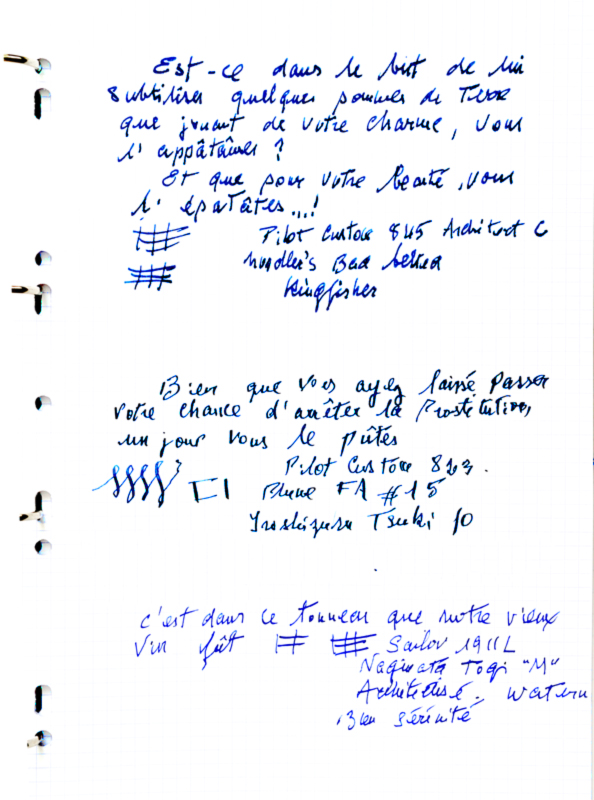 Est-ce dans le but de lui
subtiliser quelques sommes de
que jouant de votre charme, vous
l'appâtâmes ?
Et que pour votre beauté, vous
l'épatâtes...!
Pilot Custom 845 Architect C
Noodler's Bad belted
Kingfisher
Bien que vous ayez laissé passer
votre chance d'arrêter la Prostitution,
un jour vous le pûtes
Pilot Custom 823.
Plume FA #15
Tsuki yo
c'est dans ce tonneau que notre vieux
vin fût Sailor 1911L
Naginata Togi "M"
Architectisé. Waterman
Bleu sérénité